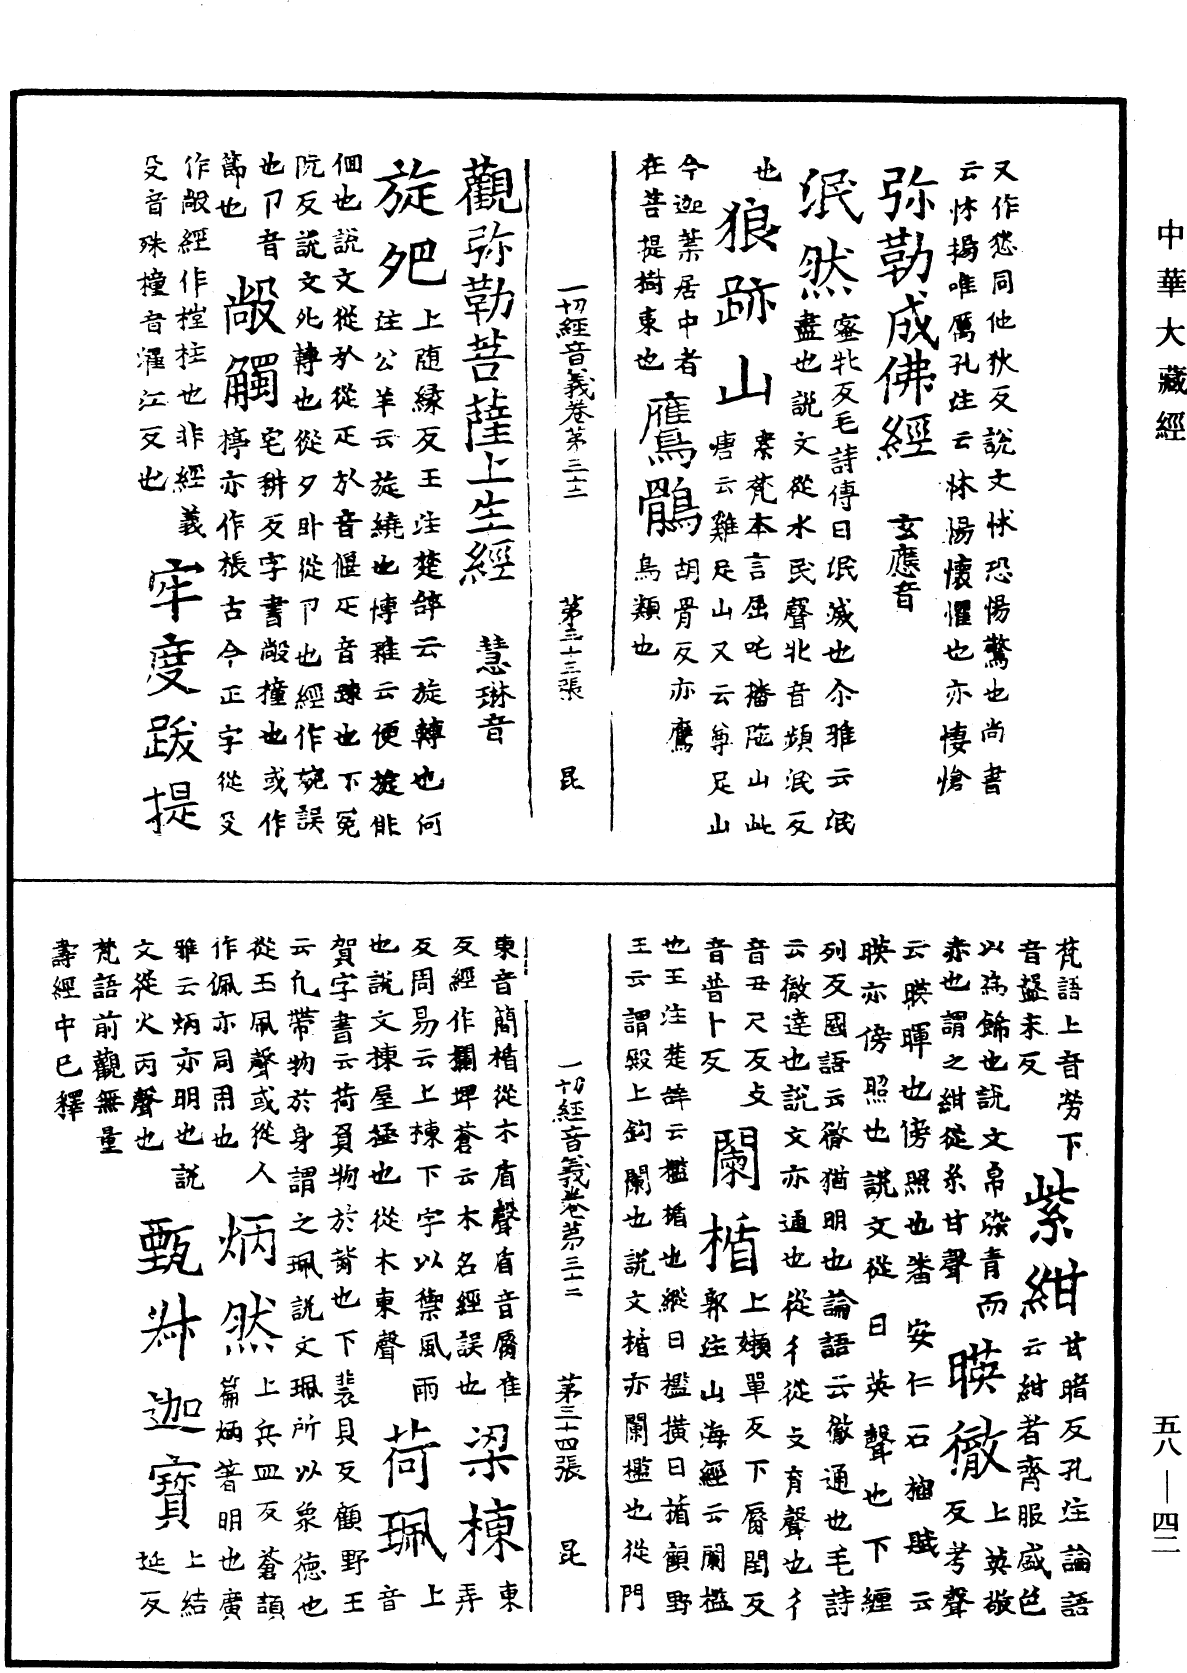 中華大藏經
又作愁同他狄反說文怵恐惕驚也尚書
云怵惕唯厲孔注云怵惕懷懼也亦悽愴
弥勒成佛經 玄應音
泯然 蜜牝反毛詩傳曰泯滅也尒雅云泯
盡也說文從水民聲牝音頻泯反
也 狼跡山 案梵本言屈吒播陁山此
唐云雞足山又云尊足山
今迦葉居中者
在菩提樹東也 鴈鶻 胡骨反亦鷹
鳥類也
一切經音義卷第三十二 第三十三張 昆
觀弥勒菩薩上生經 慧琳音
旋夗 上随緣反王注楚辝云旋轉也何
注公羊云旋繞也博雅云便旋俳
佪也說文從㫃從疋㫃音偃疋音踈也下冤
阮反說文夗轉也從夕卧從卪也經作婉誤
也卪音
節也 敞觸 宅耕反字書敞撞也或作
揨亦作棖古今正字從殳
作敞經作樘柱也非經義
殳音殊撞音濯江反也 牢度跋提
梵語上音勞下
音盤未反 紫紺 甘暗反孔注論語
云紺者齊服盛色
以為飾也說文帛染青而
赤也謂之紺從糸甘聲 暎徹 上英敬
反考聲
云暎暉也傍照也潘安仁石榴賦云
暎亦傍照也說文從日英聲也下纏
列反國語云徹猶明也論語云徹通也毛詩
云徹達也說文亦通也從彳從攴育聲也彳
音丑尺反攴
音普卜反 闌楯 上嬾單反下脣閏反
郭注山海經云闌檻
也王注楚辝云檻楯也縱曰檻橫曰楯顧野
王云謂殿上鈎闌也說文楯亦闌檻也從門
一切經音義卷第三十二 第三十四張 昆
東音簡楯從木盾聲盾音脣准
反經作攔埤蒼云木名經誤也 梁棟 東
弄
反周易云上棟下宇以禦風雨
也說文棟屋極也從木東聲 荷珮 上
音
賀字書云荷負物於背也下裴貝反顧野王
云凢帶物於身謂之珮說文珮所以象德也
從玉凧聲或從人
作佩亦同用也 炳然 上兵皿反蒼頡
篇炳著明也廣
雅云炳亦明也說
文從火丙聲也 甄舛迦寶 上結
延反
梵語前觀無量
壽經中已釋
五八—四二